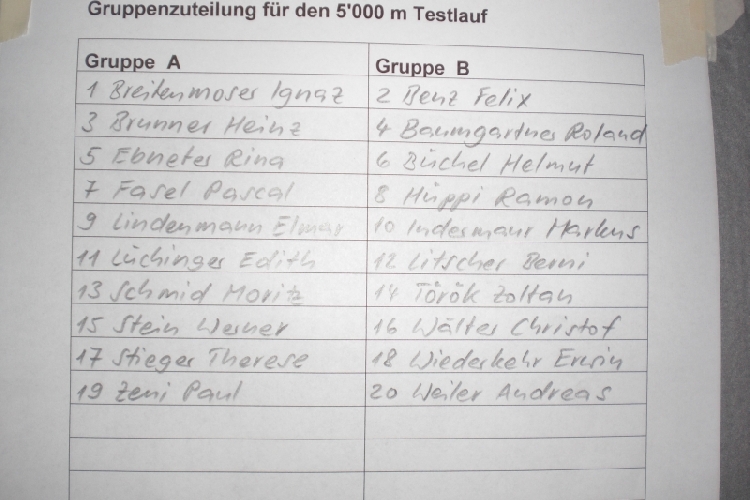 Gruppenzuteilung für den 5'000 m Testlauf
Gruppe A Gruppe B
1 Breitenmoser Ignaz 2 Benz Felix
3 Brunner Heinz 4 Baumgartner Roland
5 Ebneter Rina 6 Büchel Helmut
7 Fasel Pascal 8 Hüppi Ramon
9 Lindenmann Elmar 10 Indermaur Markus
11 Lüchinger Edith 12 Litscher Berni
13 Schmid Moritz 14 Török Zoltan
15 Stein Werner 16 Wälter Christof
17 Stieger Therese 18 Wiederkehr Erwin
19 Zeni Paul 20 Weiler Andreas